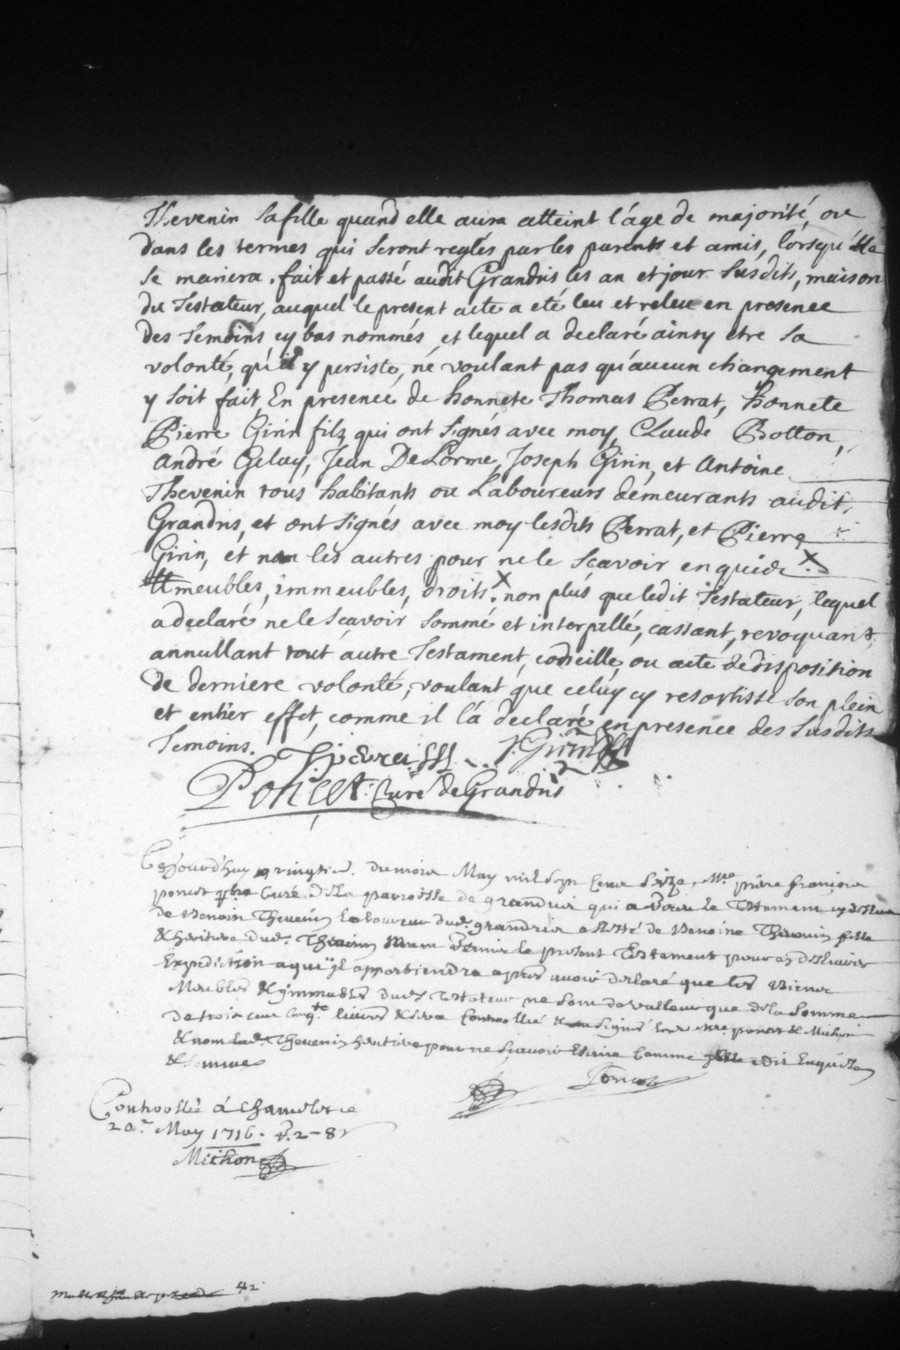 Thevenin sa fille quand elle aura atteint l'âge de majorité, ou
dans les termes qui seront reglés par les parents et amis, lorsqu'elle
se mariera. fait et passé audit Grandris les an et jour susdits, maison
du Testateur, auquel le present acte a eté leu et releu en presence
des Temoins cy bas nommés, et lequel a declaré ainsy etre sa
volonté, qu'il y persiste, ne voulant pas qu'aucun changement
y soit fait En presence de honnete Thomas Perrat, honnete
Pierre Girin filz qui ont signés avec moy, Claude Botton,
André Gelay, Jean DeLorme, Joseph Girin, et Antoine
Thevenin tous habitants ou Laboureurs demeurants audit
Grandris, et ont signés avec moy lesdits Perrat, et Pierre
Girin, et non les autres pour ne le sçavoir enquide X
# meubles, immeubles, droits. X non plus que ledit Testateur, lequel
a declaré ne le sçavoir sommé et interpallé, cassant, revoquant,
annullant tout autre Testament, codicille, ou acte de disposition
de derniere volonté, voulant que celuy cy resortisse son plein
et entier effet, comme il l'a declaré en presence des susdits
Temoins.
Poncet Curé de Grandris
Cejourdhuy vingtie du mois May mil sept cent seize, Mre pierre
poncet Curé de la parroisse de grandris qui a le Testament
de Benoin Thevenin Laboureur dud. grandris a Benoine Thevenin fille
& heritiere dud. Thevenin le present Testament pour en
Expedition a qui il appartiendra apres avoir declaré que les Biens
Meubles & immeubles dud Testateur ne sont de valleur que de la somme
de trois cent livres & sera Controollé & signé poncet & Michon
& non lad. Thevenin heritiere pour ne sçavoir Escrire Comme elle a dit Enquize
& sommee
Poncet
Controollé a Chamelet ce
20e May 1716.
Michon
42